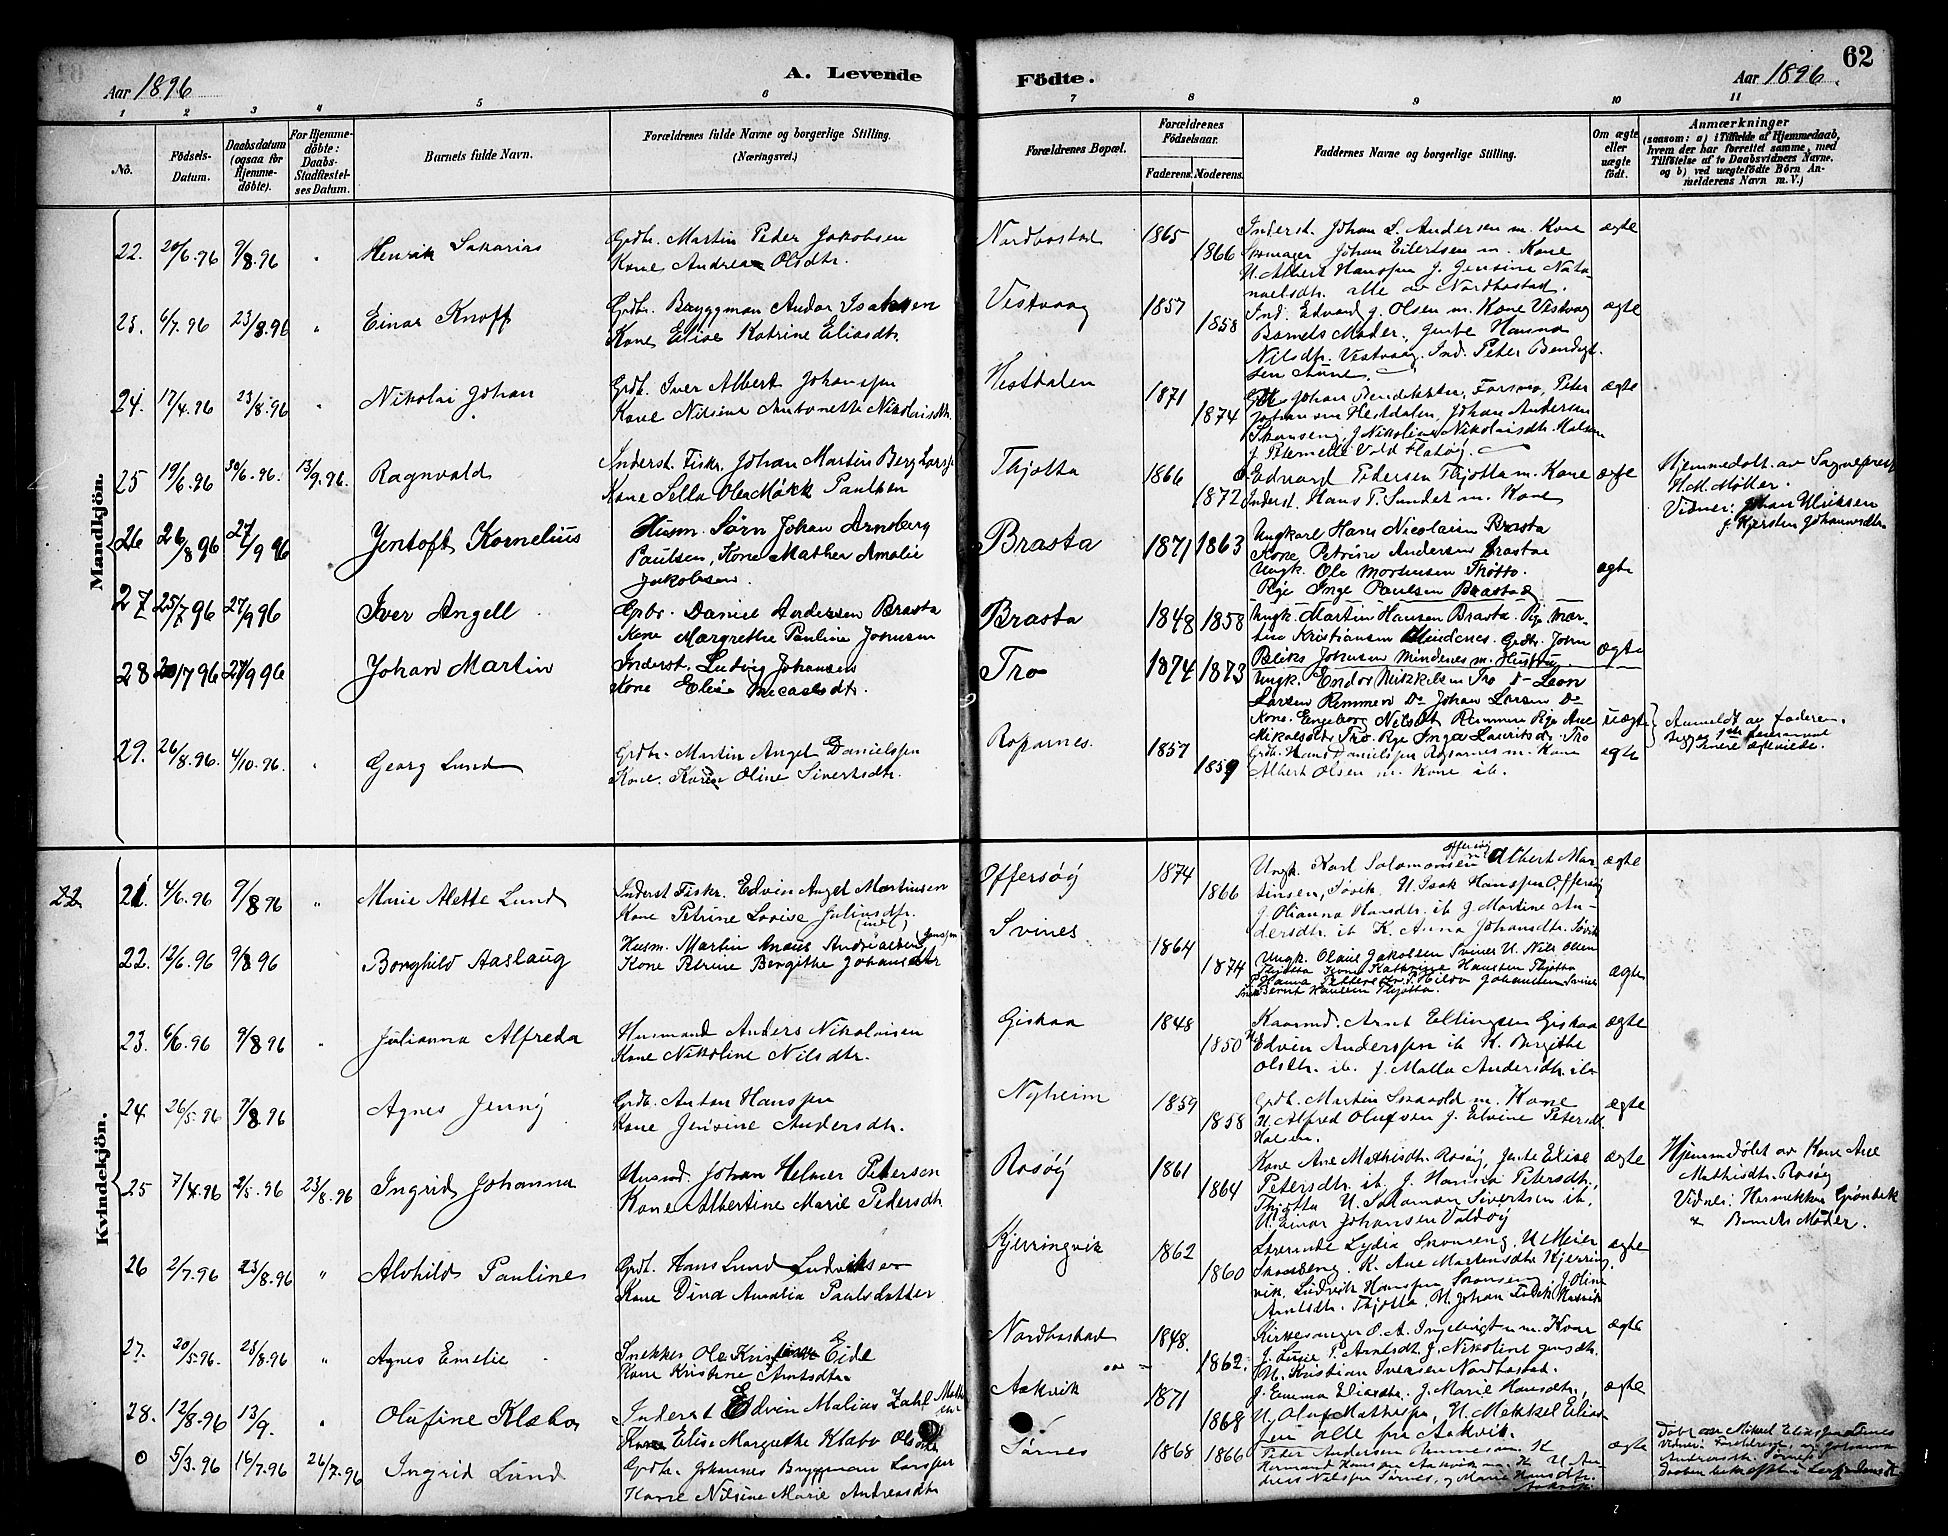 62
Aar 1896
A. Levende
Födte.
Aar 1896
1 2 3 4 5 6 7 8 9 10 11
No.
Födsels-Datum.
Daabsdatum (ogsaa for Hjemme-döbte).
For Hjemme-döbte: Daabs-Stadfæstel-ses Datum.
Barnets fulde Navn.
Forældrenes fulde Navne og borgerlige Stilling.
(Næringsvei.)
Forældrenes Bopæl.
Forældrenes Födselsaar.
Faderens. Moderens.
Faddernes Navne og borgerlige Stilling.
Om ægte eller uægte födt.
Anmærkninger
(saasom: a) i Tilfælde af Hjemmedaab,
hvem der har forrettet samme, med
Tilföielse af to Daabsvidners Navne.
og b) ved uægtefödte Börn An-
melderens Navn m. V.)
Mandkjön.
22. 20/6.96 9/8.96 " Henrik Sakarias
Grdbr. Martin Peder Jakobsen
Kone Andrea Olsdtr.
Nordbostad 1865 1866
Inderst. Johan L. Andersen m. Kone
Skomager Johan Eilertsen m. Kone
U. Albert Hanssen J. Jensine Nata-
naelsdtr. alle av Nordbostad.
ægte
23. 6/7.96 23/8.96 " Einar Knoff
Grdbr. Bryggman Andor Isaksen
Kone Elise Katrine Eliasdtr.
Vestvaag 1857 1858
Ind. Edvard J. Olsen m. Kone Vestvag
Barnets Moder, Jente Hanna
Nilsdtr. Vestvaag. Ind. Peter Bendigt-
sen Aune.
ægte
24. 17/4.96 23/8.96 " Nikolai Johan
Grdb. Iver Albert Johanssen
Kone Nilsine Antonette Nikolaisdtr.
Hestdalen 1871 1874
Johan Bendiktsen, Forsmo, Peter
Johansen Hestdalen, Johan Andersen
Skonseng, J. Nikoline Nikolaisdtr.
J. Peternelle Vold Flatøy.
ægte
25 19/6.96 30/6.96. 13/9.96. Ragnvald
Inderst. Fiskr. Johan Martin Berg Larss.
Kone Sella Olea Mökk Paulsen
Thjotta 1866 1872
Edvard Pedersen Thjotta m. Kone
Inderst. Hans P. Sundet m. Kone
ægte
Hjemmedøbt av Sognepræst
H. M. Møller.
Vidner: Johan Ulriksen
J. Kjersten Johannesdtr.
26 26/8 96 27/9 96 Jentoft Kornelius
Husm. Sørn Johan Arnsberg
Paulsen, Kone Mathea Amalie
Jakobsen.
Brasta 1871 1863
Ungkarl Hans Nicolaisen Brasta
Kone Petrine Andersen Brastae
Ungk. Ole Mortensen Thøtto.
Pige Inge Paulsen Brastad
ægte
27 25/7 96 27/9 96 Iver Angell
Grbr. Daniel Andersen Brasta
Kone Margrethe Pauline Johnsen
Brasta 1848 1858
Ungk. Martin Hansen Brasta. Pige Mar-
tine Kristiansen Mindenes. Grdb. John
Johnsen Mindenes m. Hustru.
ægte
28 20/7 96 27/9 96 Johan Martin
Inderst. Ludvig Johansen
Kone Elise Micaelsdtr.
Tro 1874 1873
Ungk. Endor Mikkelsen Tro Do Leon
Larsen Remmen Do Johan Larsen Do
Kone. Engeborg Nilsdt Remmen Pige Ane
Mikalsdtr Tro. Pige Inga Lauritsdr. Tro
uægte
Anmeldt av faderen.
29. 26/8.96. 4/10.96. " Georg Lund
Grdb. Martin Angel Danielssen
Kone. Karen Oline Sivertsdtr.
Roparnes. 1857 1859
Grdb. Hans Danielssen Roparnes m. Kone
Albert Olsen m. Kone ib.
ægte
Kvindekjön.
22
21 4/6.96 9/8 96 " Marie Alette Lund
Inderst Fiskr. Edvin Angel Martinsen
Kone Petrine Lovise Juliusdtr.
Offersøy 1874 1866
Ungk. Karl Salomonsen Offersøy Albert Mar-
tinsen, Søvik. U. Isak Hanssen Offersøy
J. Olianna Hansdtr. ib J. Martine An-
dersdtr. ib K. Anna Johansdtr. Søvik
ægte
22. 12/6.96 9/8 96 Borghild Aaslaug
Husm. Martin Anaus Andreassen Jenssen
Kone Petrine Bergithe Johansdtr
Svines 1864 1874
Ungk. Olaus Jakobsen Svines U. Nils Olsen
Thjøtta Kone Kathrine Hansen Thjøtta
P. Hanna Pettersdtr. P. Hilda Johansen Svines
Bernt Hansen Thjøtta.
ægte
23. 6/6.96 9/8 96 " Julianna Alfreda
Husmand Anders Nikolaisen
Kone Nikoline Nilsdtr.
Giskaa 1848 1850
Kaarmd. Arnt Ellingsen Giskaa
Edvin Anderssen ib K. Bergithe
Olsdtr. ib. J. Malla Andersdtr. ib
ægte
24. 26/5.96 9/8.96 Agnes Jenny
Grdb. Anton Hanssen
Kone Jensine Andersdtr.
Nyheim 1859 1858
Grdb. Martin Svavold m. Kone
U. Alfred Olufsen J. Elvine Petersdt.
Halsen.
ægte
25 7/4.96 2/5.96 23/8.96 Ingrid Johanna
Husmd. Johan Helmer Petersen
Kone Albertine Marie Pedersdtr.
Rosøy 1861 1864
Kone Ane Mathisdtr. Rosøy, Jente Elise
Petersdtr. ib. J. Hansia Petersdtr.
Thjøtta U. Salomon Sivertsen ib.
U. Einar Johansen Valdøy
ægte
Hjemmedøbt av Kone Ane
Mathisdtr. Rosøy
Vidner: Hermekka Grønbek
& Barnets Moder.
26 2/7.96 23/8.96 " Alvhild Pauline
Grdb. Hans Lund Ludviksen
Kone Dina Amalia Paulsdatter
Kjerringvik 1862 1860
Lærerinde Lydia Skonseng, U Meier
Skonseng. K. Ane Martensdtr. Kjerring-
vik. Ludvik Hanssen Skonseng J. Oline
Arntsdtr. Thjøtta, U. Johan
ægte
27. 20/5.96. 23/8.96 " Agnes Emelie
Snekker Ole Kristian Eide
Kone Kristine Arntsdtr.
Nordbostad 1848. 1862.
Kirkesanger O. A. Ingebrigtsen m. Kone
J. Lusie P. Arntsdt. J. Nikoline Jensdtr.
U. Kristian Iversen Nordbostad.
ægte
28. 12/8.96 13/9. " Olufine Klabo
Inderst Edvin Malius Zahl
Kone Elise Margrethe Klabo Olsdtr
Aakvik 1871 1868
J. Emma Eliasdtr. J. Marie Hansdtr.,
U. Oluf Mathissen, U. Mekkel Elias-
sen alle fra Aakvik.
ægte
0 5/3.96 16/7.96 26/7.96 Ingrid Lund
Grdb. Johannes Bryggman Larssen
Kone Nilsine Marie Andreasdtr
Sørnes 1868 1866
Peter Andersen
Hermand Hanssen Aakvik m. K U. An-
dreas Nilssen Sørnes, og Marie Hansdtr.
Aakvik
ægte
Døbt av Mikael Eliassen